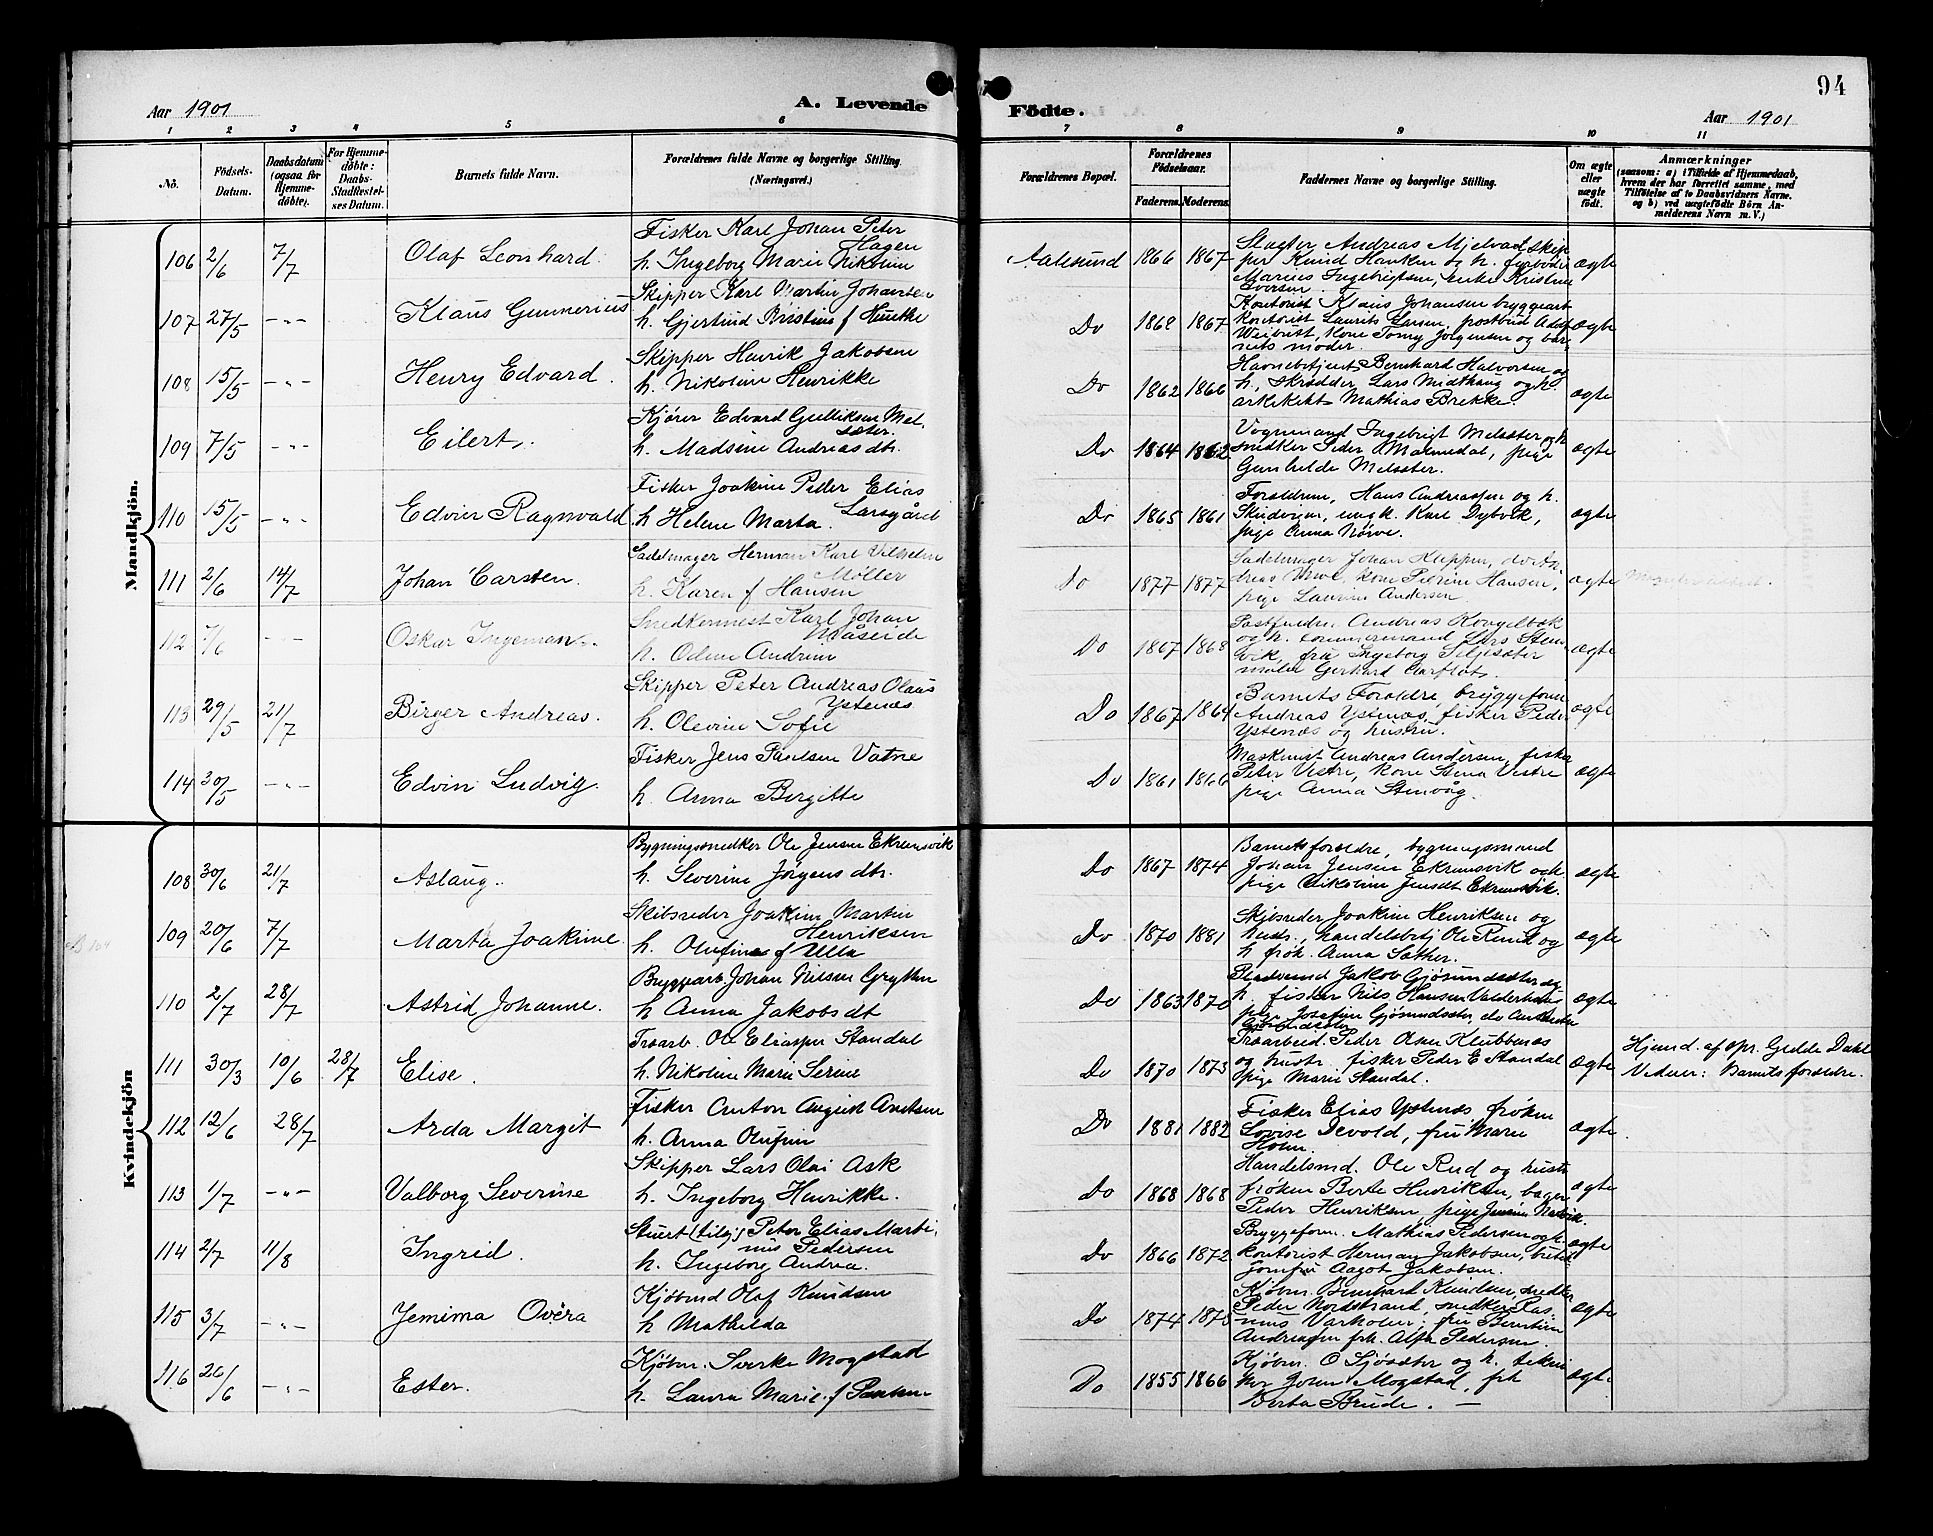 94
Aar 1901
A. Levende
Födte.
Aar 1901
1 2 3 4 5 6 7 8 9 10 11
No.
Födsels-Datum.
Daabsdatum (ogsaa for Hjemme-döbte).
For Hjemme-döbte: Daabs-Stadfæstel-ses Datum.
Barnets fulde Navn.
Forældrenes fulde Navne og borgerlige Stilling.
(Næringsvei.)
Forældrenes Bopæl.
Forældrenes Födselsaar.
Faderens. Moderens.
Faddernes Navne og borgerlige Stilling.
Om ægte eller uægte födt.
Anmærkninger
(saasom: a) i Tilfælde af Hjemmedaab, hvem der har forrettet samme, med Tilföielse af to Daabsvidners Navne, og b) ved uægtefödte Börn An-melderens Navn m. V.)
Mandkjön.
106 2/6 7/7 Olaf Leonhard
Fisker Karl Johan Peter Hagen
h. Ingeborg Marie
Aalesund 1866 1867
Slagter Andreas Mjelvad, skip-
per Knud Hanken og h.
Marius Ingebrigtsen, enke Kristine
Iversen
ægte
107 27/5 -"- Klaus Gunnerius
Skipper Karl Martin Johansen
h. Gjertud
Do 1867
Kontorist Klaus Johansen
kontorist Laurits Larsen, postbud
kone Tomy Jörgensen og bar-
nets moder.
ægte
108 15/5 -"- Henry Edvard.
Skipper Henrik Jakobsen
h. Nikoline Henrikke
Do 1862 1866
Havnebetjent Bernhard Halvorsen og
h, skrædder Lars Midthaug og h.
arkitekt Mathias Brekke.
ægte
109 7/5 -"- Eilert.
Kjörer Edvard Gulliksen Mel-
sæter.
h. Madsine Andreasdtr.
Do 1864 1862
Vognmand Ingebrigt Melsæter og h
snedker Peder Malmedal, pige
Gunhilde Melsæter.
ægte
110 15/5 -"- Edvin Ragnvald
Fisker Joakim Peder Elias
Larsgård
h Helene Marta.
Do 1865 1861
Forældrene, Hans Andreassen og h.
ungk. Karl Dybvik,
pige Anna Nörve.
ægte
111 2/6 14/7 Johan Carsten.
Sadelmager Herman Karl Vilhelm
Möller
h. Karen f Hansen
Do 1877 1877
Sadelmager Johan
kone Hansen,
pige Laurine Andersen.
ægte
112 7/6 -"- Oskar Ingeman.
Karl Johan
Måseide
h. Odine Andrine
Do 1867 1868
Andreas Kongelbæk
og h.
vik, frü Ingeborg
maler Gerhard
ægte
113 29/5 21/7 Birger Andreas.
Skipper Peter Andreas Olaus
Ystenæs
h. Olevine Sofie
Do 1867 1864
Barnets Forældre, bryggeform
Andreas Ystenæs, fisker Peder
Ystenæs og hustru.
ægte
114 30/5 -"- Edvin Ludvig.
Fisker Jens Paulsen Vatne
h. Anna Birgitte
Do 1861 1866
Maskinist Andreas Andersen, fisker
Peter Vestre, kone Stina Vestre
pige Anna Stenvåg.
ægte
Kvindekjön
108 30/6 21/7 Aslaug.
Bygningssnedker Ole Jensen Ekremsvik
h. Severine Jörgensdtr.
Do 1867 1874
Barnets forældre, bygningsmand
Johan Jensen Ekremsvik og h.
pige Nikoline Jensdt Ekremsvik.
ægte
109 20/6 7/7 Marta Joakime.
Skibsreder Joakim Martin
Henriksen
h. Olufine f Ulla
Do 1870 1881
Skibsreder Joakim Henriksen og
hustr., handelsbetj Ole Rund og
h frök. Anna Sæther.
ægte
110 2/7 28/7 Astrid Johanne.
Bryggearb. Johan Nilsen Grytten
h Anna Jakobsdt
Do 1863 1870
Jakob Gjösundsæter og
h, fisker Nils Hansen
pige Josefine Gjösundsæter,
ægte
111 30/3 10/6 28/7 Elise.
Træarb. Ole Eliassen Standal
h. Nikoline Marie Serine
Do 1870 1873
Træarbeid. Peder Olsen Klubbenæs
og hustr. fisker Peder E Standal
pige Marie Standal.
ægte
Hjemd. af spr. Gedde Dahl
Vidner: Barnets forældre.
112 12/6 28/7 Arda Margit
Fisker Anton August
h. Anna Olufine
Do 1881 1882
Fisker Elias Ystenæs, fröken
Lovise Devold, frü Marie
Holm.
ægte
113 1/7 -"- Valborg Severine
Skipper Lars Olai Ask
h. Ingeborg Henrikke.
Do 1868 1868
Handelsmd. Ole Rud og hustr
fröken Berte Henriksen, bager
Peder Henriksen, pige
ægte
114 2/7 11/8 Ingrid.
Stuert Peter Elias Marti-
nus Pedersen
h. Ingeborg Andrea.
Do 1866 1872
Bryggeform. Mathias Pedersen og h.
kontorist Herman Jakobsen,
Jomfru Aagot Jakobsen.
ægte
115 3/7 -"- Jemima Overa
Kjöbmd Olaf Knudsen
h Mathilda
Do 1874 1875
Kjöbm. Bernhard Knudsen, snedker
Peder Nordstrand, snedker Ras-
mus Varholm, frü
Andreassen frk. Alfa Pedersen.
ægte
116 26/6 -"- Ester.
Kjöbm. Sverke Mogstad
h. Laura Marie f
Do 1855 1866
Kjöbm. O Sjösæter og h.
Mogstad, frk
Berta Brude. -
ægte.